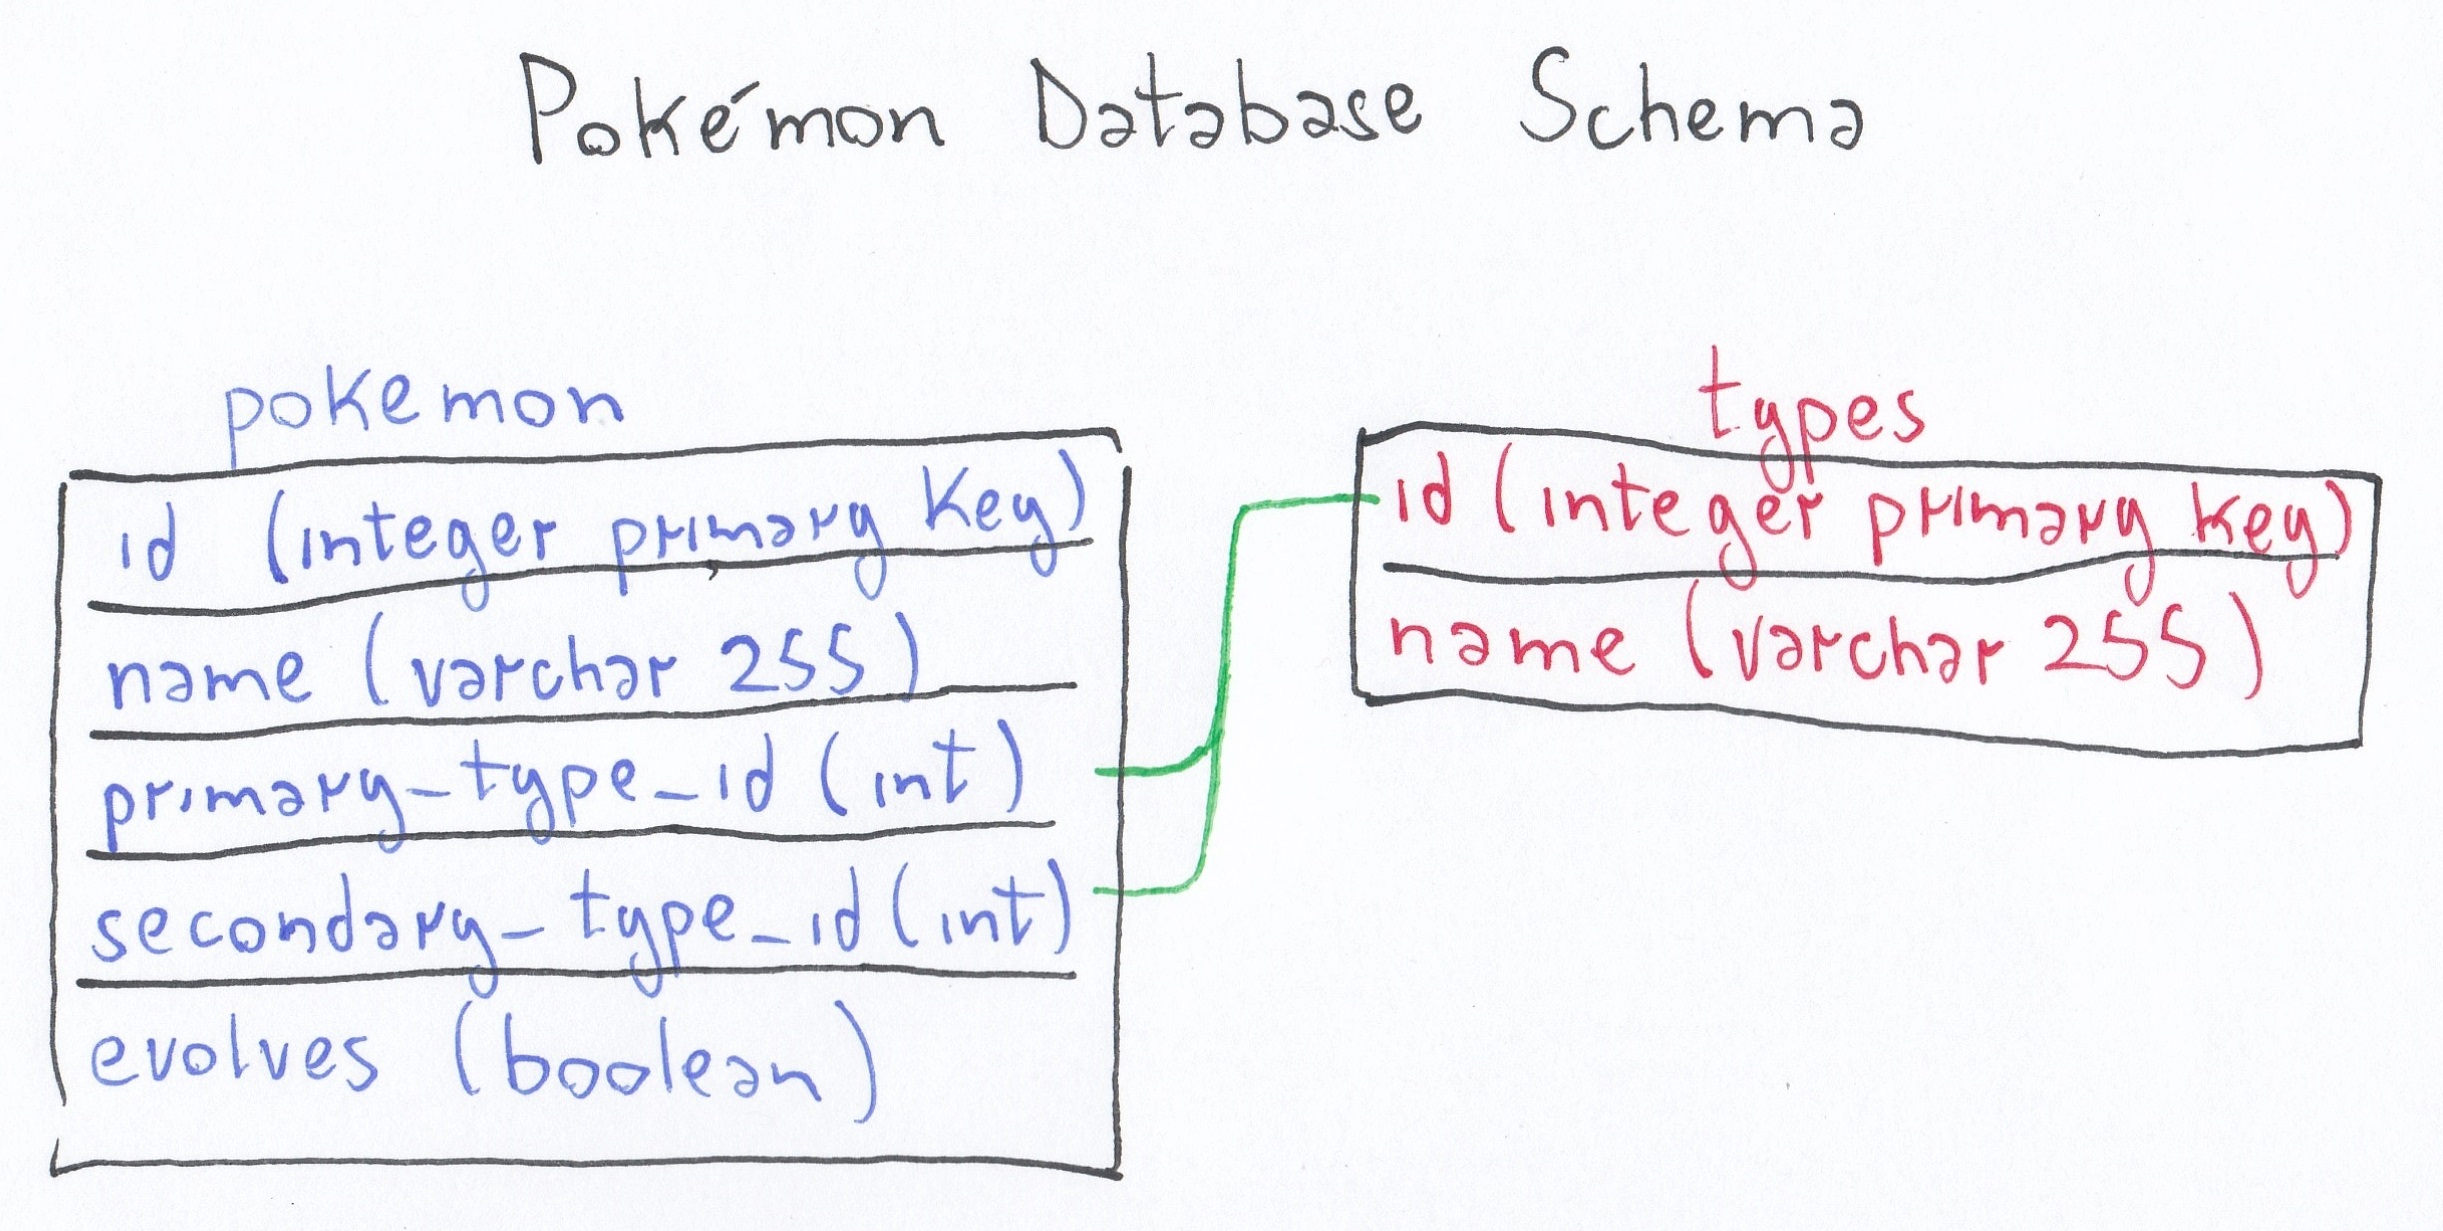 Pokémon Database Schema
pokemon
id (integer primary key)
name (varchar 255)
primary_type_id (int)
secondary_type_id (int)
evolves (boolean)
types
id (integer primary key)
name (varchar 255)